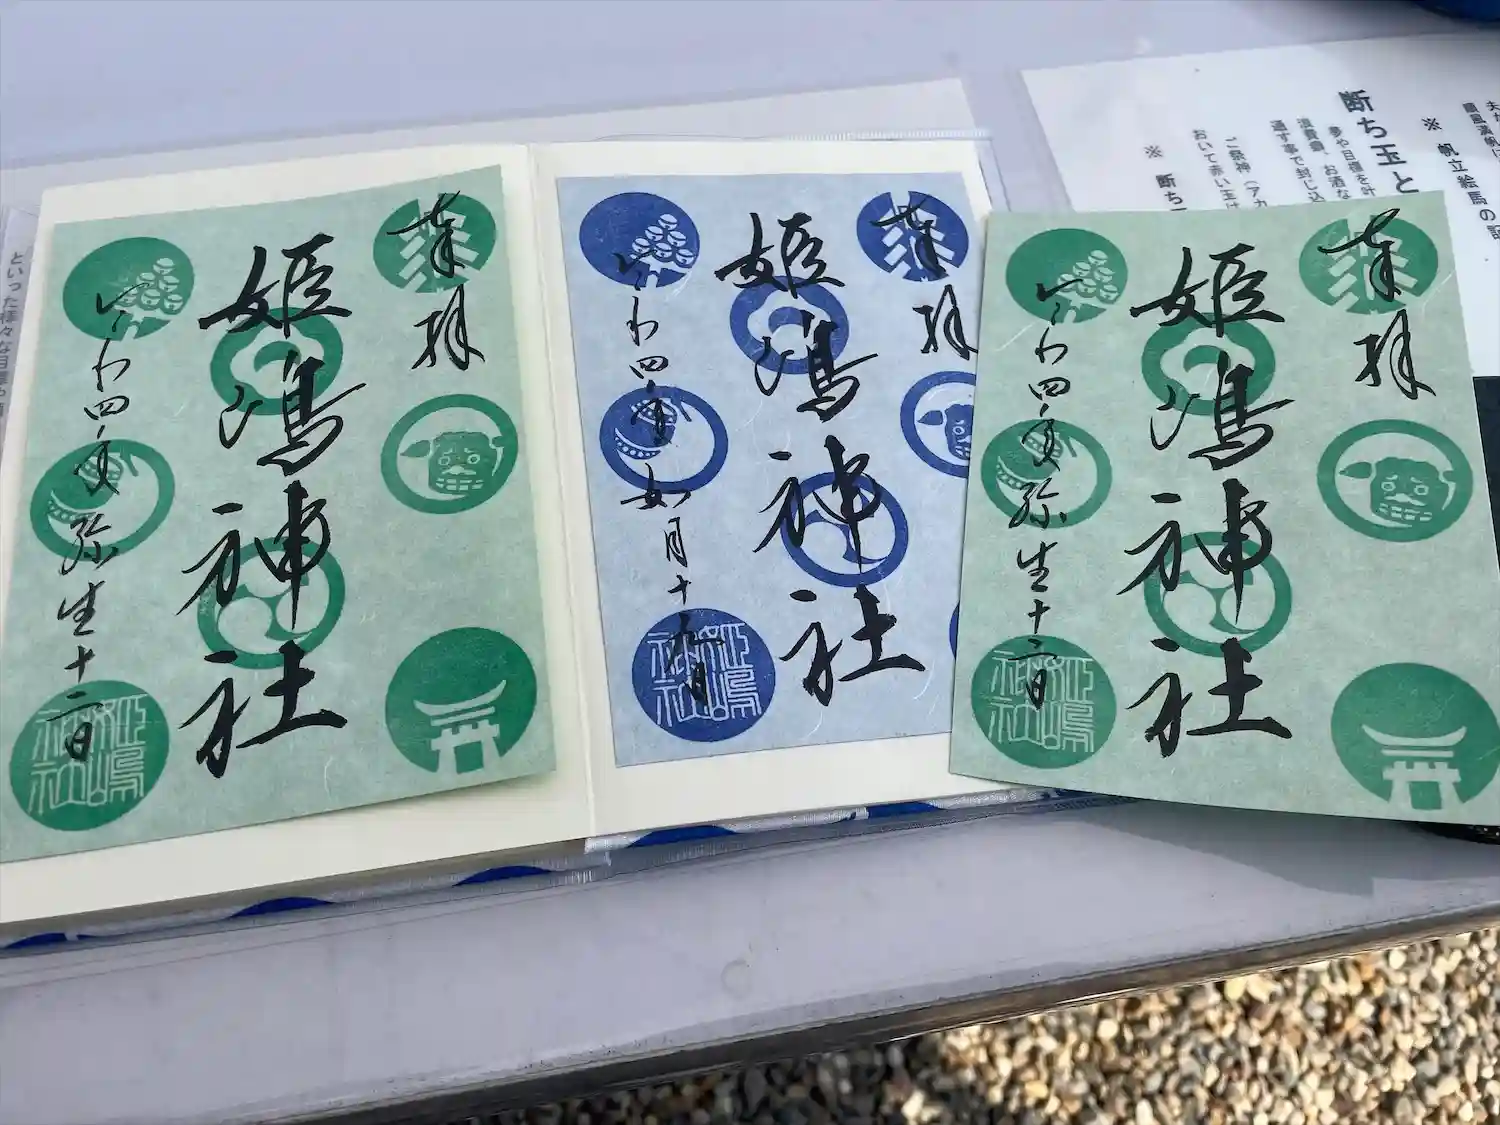 奉拝
姫嶋神社
れいわ四年弥生十二日
姫嶋神社
奉拝
姫嶋神社
れいわ四年如月十九日
姫嶋神社
奉拝
姫嶋神社
れいわ四年弥生十二日
姫嶋神社
順風満帆に
※ 帆立絵馬の記
断ち玉と
夢や目標を叶
浪費癖、お酒な
通す事で封じ込
ご祭神（アカ
おいて赤い玉は
※ 断ち
といった様々な目標や